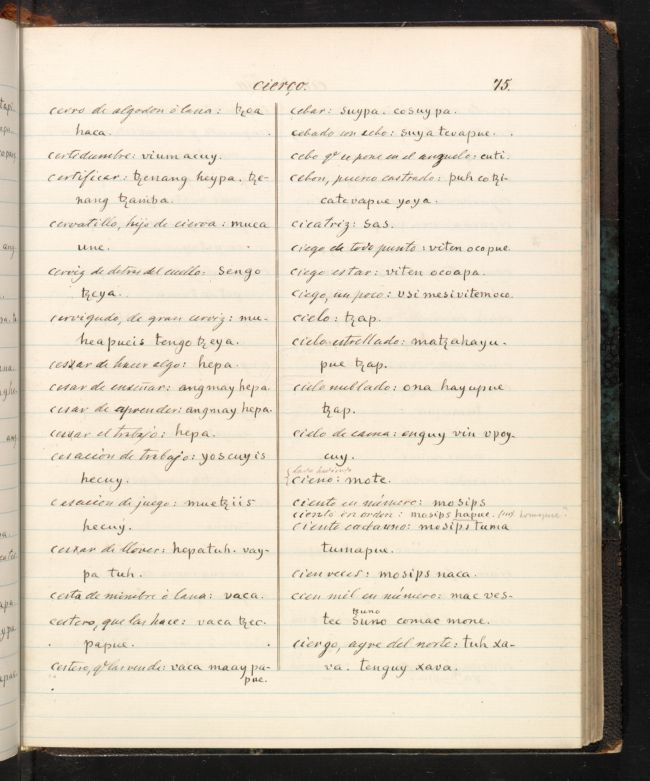 cierço.
75.
cerro de algodon ò lana: tzoa
haca.
certidumbre: vium acuy.
certificar: tzenang heypa. tze-
nang tzamba.
cervatillo, hijo de cierva: muca
une.
cerviz de detras del cuello: sengo
tzeya.
cerrigudo, de gran cerviz: mu-
heapueis tengo tzeya.
cessar de hacer algo: hepa.
cesar de enseñar: angmay hepa.
cesar de aprender: angmay hepa.
cessar el trabajo: hepa.
cesacion de trabajo: yoscuy is
hecuy.
cesacion de juego: muetziis
hecuy.
cessar de llover: hepatuh. vay-
pa tuh.
cesta de mimbre ò lana: vaca.
cestero, que las hace: vaca tzec-
papue.
cestero, q.e las vende: vaca maay pa-
pue.
cebar: suypa. cosuypa.
cebado con sebo: suya tevapue.
cebo q.e se pone en el anzuelo: cuti.
cebon, puerco castrado: puh cotzi-
catevapue yoya.
cicatriz: sas.
ciego de todo punto: viten ocopue.
ciego estar: viten ocoapa.
ciego, un poco: usi mesivitemoco.
cielo: tzap.
cielo estrellado: matzahayu-
pue tzap.
cielo nublado: ona hayupue
tzap.
cielo de cama: onguy vin vpoy-
cuy.
cieno: mote.
ciento en número: mosips
ciento en orden: mosips hapue.
ciento cada uno: mosips tuma
tumapue.
cien veces: mosips naca.
cien mil en número: mac ves-
tzuno
tec suno comac mone.
cierço, ayre del norte: tuh xa-
va. tenguy xava.